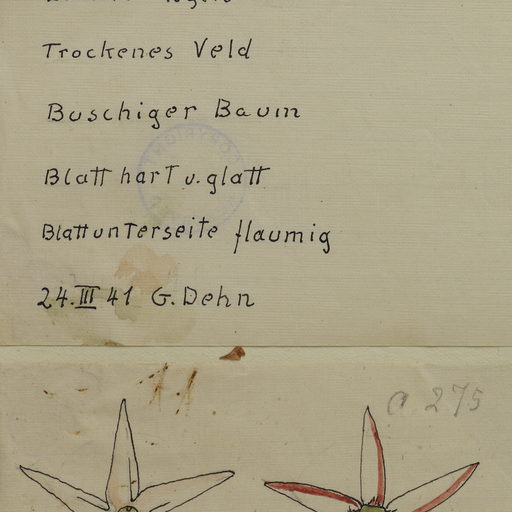 Trockenes Veld
Buschiger Baum
Blatt hart u. glatt
Blattunterseite flaumig
24.III 41 G. Dehn
a 275